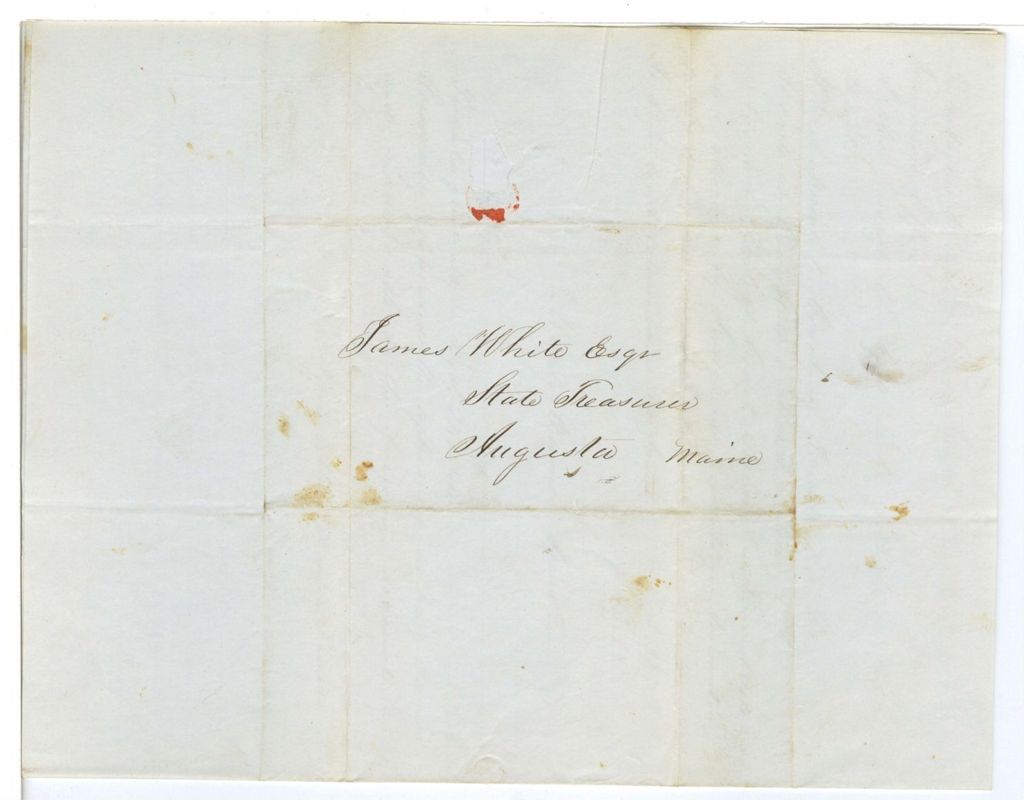 James White Esqr
State Treasurer
Augusta Maine